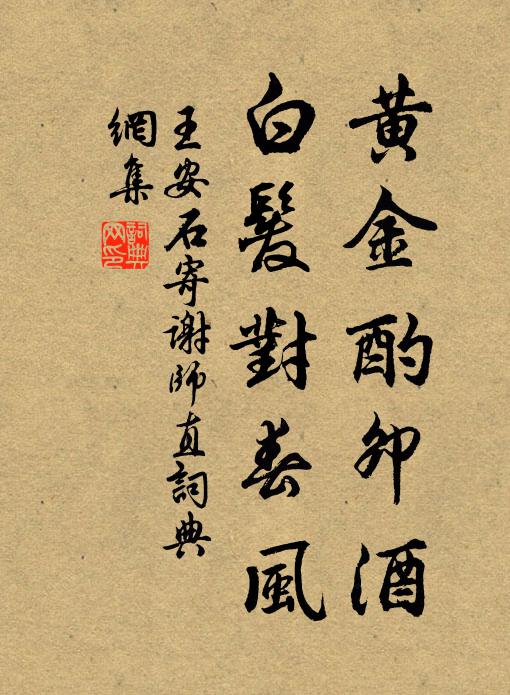 黃金酌卯酒
白髮對春風
王安石寄謝師直詞典
網集
詞典
网印